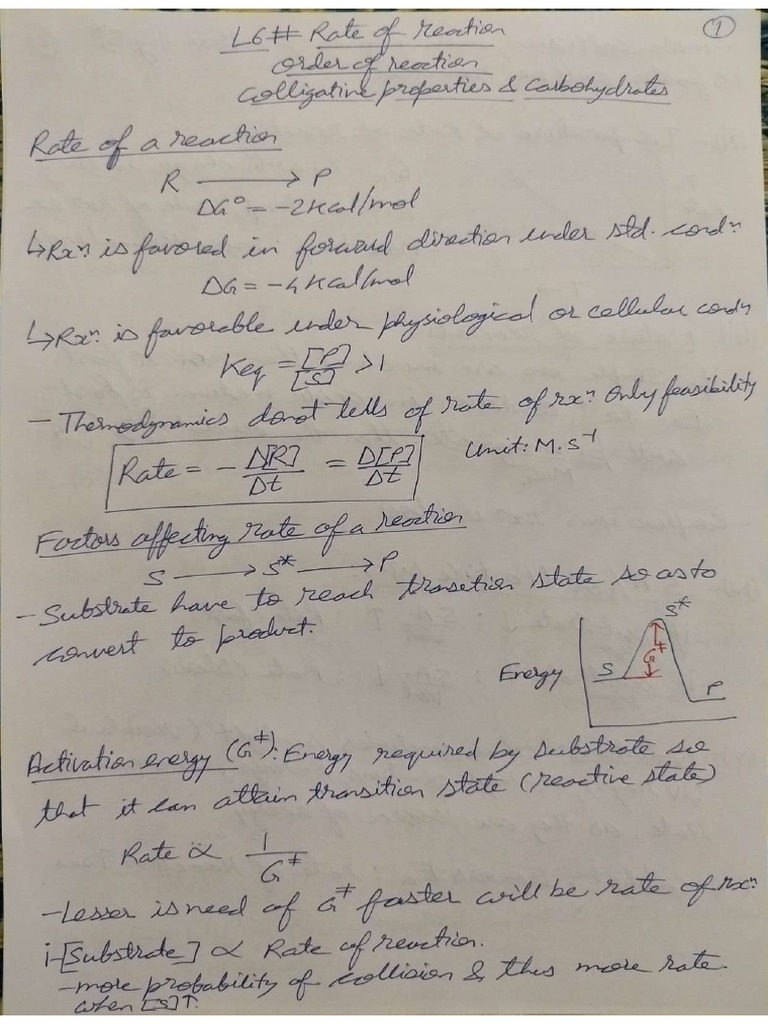 L6# Rate of reaction
①
order of reaction
Colligative properties & Carbohydrates
Rate of a reaction
R ⟶ P
ΔG° = -2Kcal/mol
↳ Rxⁿ is favored in forward direction under std. condⁿ
ΔG = -4Kcal/mol
↳ Rxⁿ is favorable under physiological or cellular condⁿ
Keq = [P]/[S] > 1
- Thermodynamics donot tells of rate of rxⁿ. Only feasibility
Rate = - Δ[R]/Δt = Δ[P]/Δt
Unit: M.S⁻¹
Factors affecting rate of a reaction
S ⟶ S* ⟶ P
- Substrate have to reach transetion state so as to
convert to product.
S*
Energy S G‡ P
Activation energy (G‡): Energy required by substrate so
that it can attain transition state (reactive state)
Rate ∝ 1/G‡
- Lesser is need of G‡ faster will be rate of rxⁿ.
i- [Substrate] ∝ Rate of reaction.
- more probability of collision & thus more rate
when [S]↑.